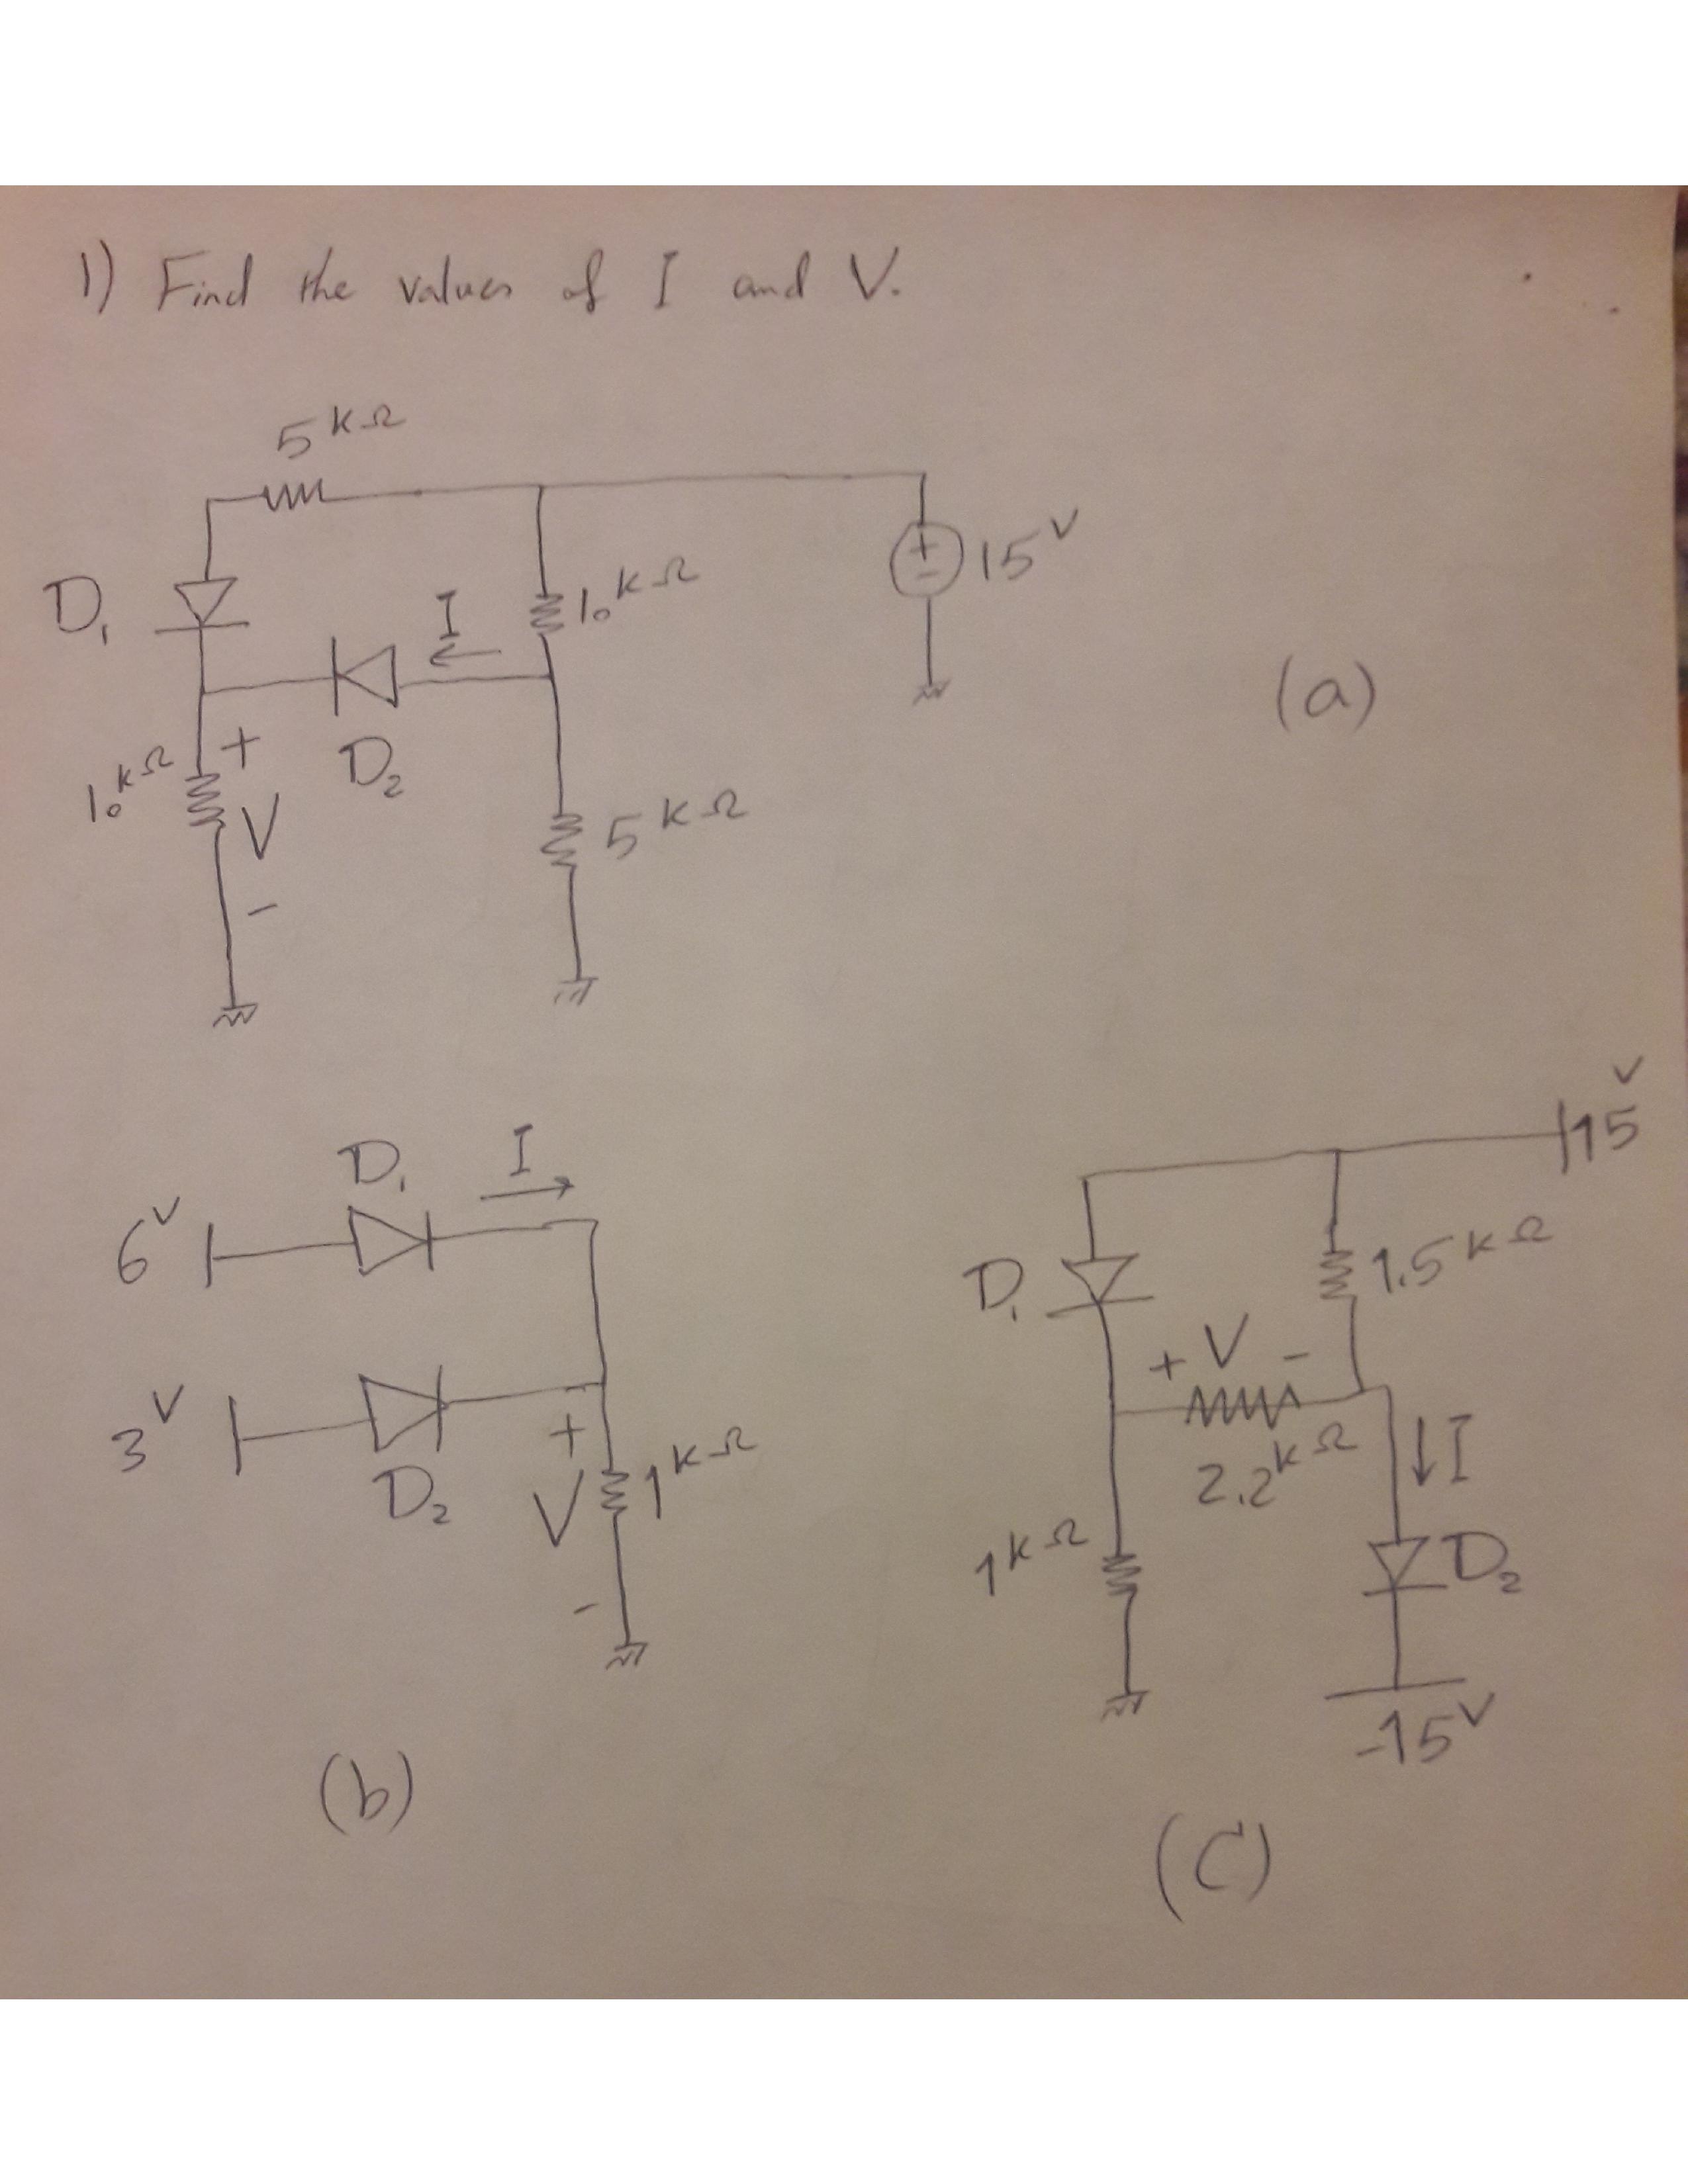 1) Find the values of I and V.
5 kΩ
D1
I
10 kΩ
+
-
15 V
(a)
10 kΩ
+
V
-
D2
5 kΩ
15 V
D1
I
6 V
D1
1.5 kΩ
+ V -
3 V
D2
+
V
-
1 kΩ
2.2 kΩ
I
1 kΩ
D2
-15 V
(b)
(C)